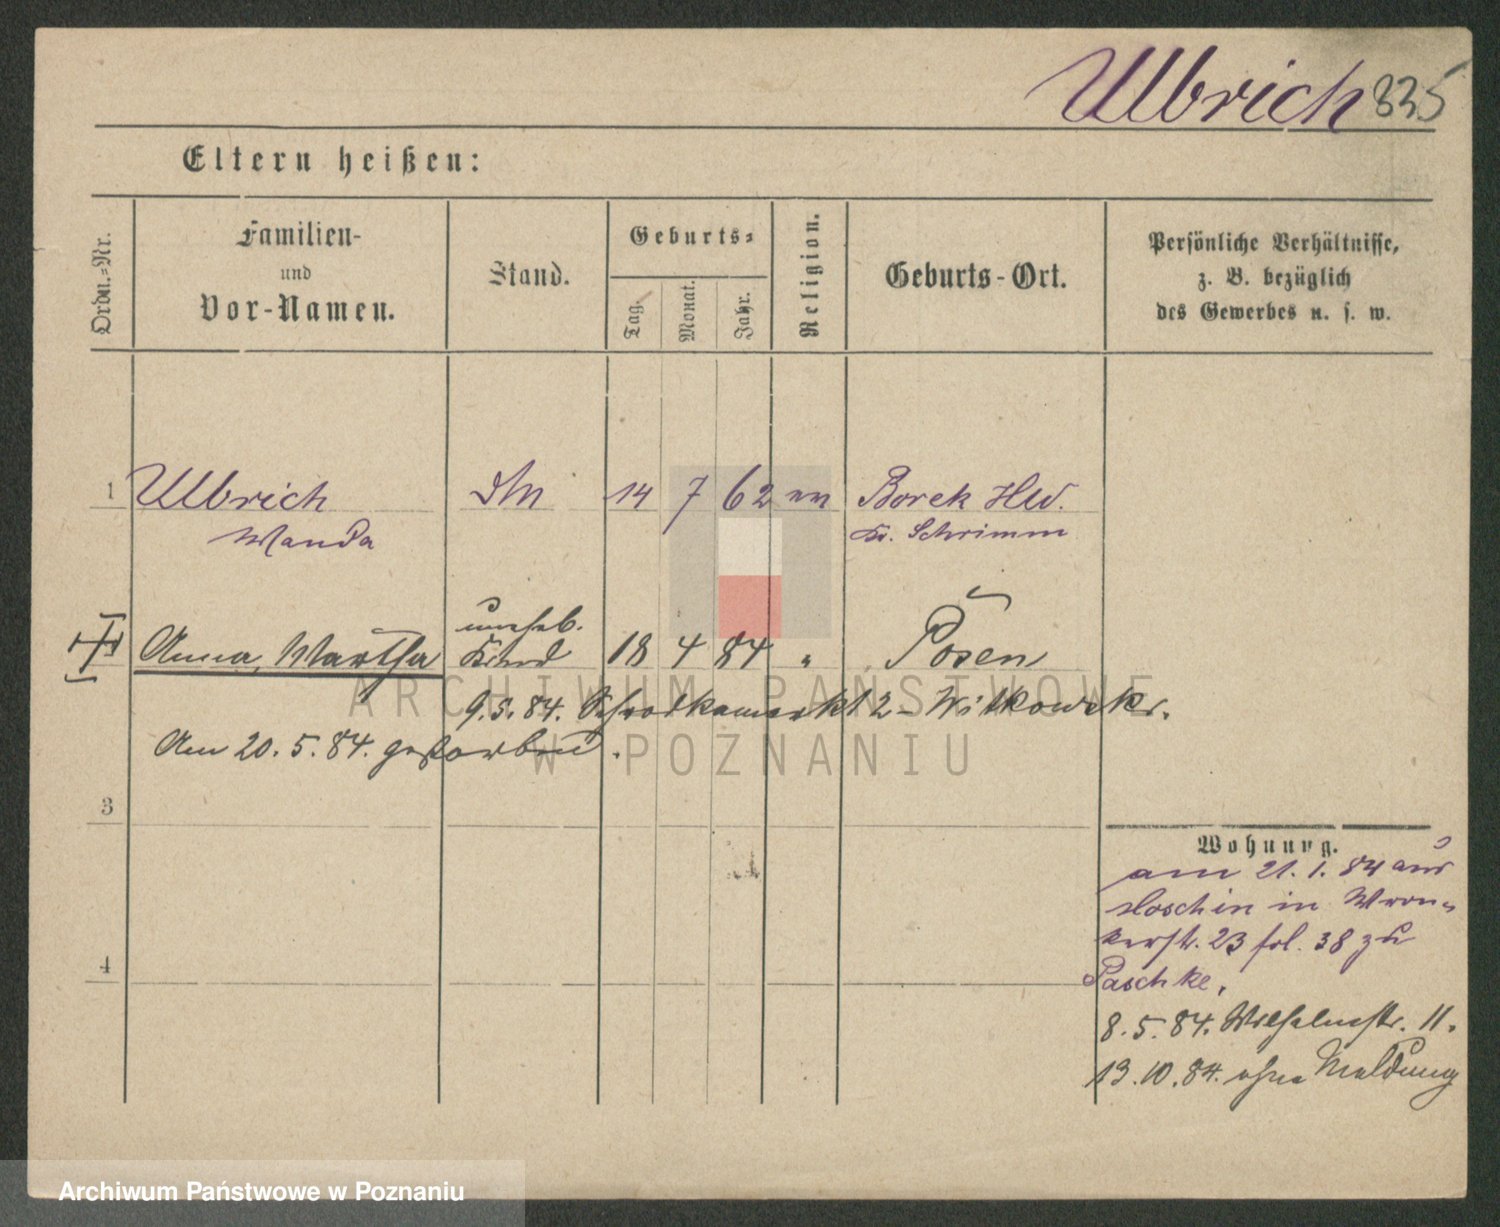 Ulbrich 835
Eltern heißen:
Ordn.=Nr.
Familien-
und
Vor-Namen.
Stand.
Geburts=
Tag.
Monat.
Jahr.
Religion.
Geburts-Ort.
Persönliche Verhältnisse,
z. B. bezüglich
des Gewerbes u. s. w.
1 Ulbrich 14 7 62 Borek Hld.
Wanda Kr. Schrimm
uneheb.
Anna, Martha Kind 18 4 84 " Posen
9.5.84. Schrodkamarkt 2 - Witkowskr.
Am 20.5.84. gestorben.
3
4
Wohnung.
am 21.1.84 aus
in Wron=
kerstr. 23 fol. 38 zu
Paschke,
8.5.84. Wilhelmstr. 11.
13.10.84. ohne Meldung
ARCHIWUM PAŃSTWOWE
W POZNANIU
Archiwum Państwowe w Poznaniu